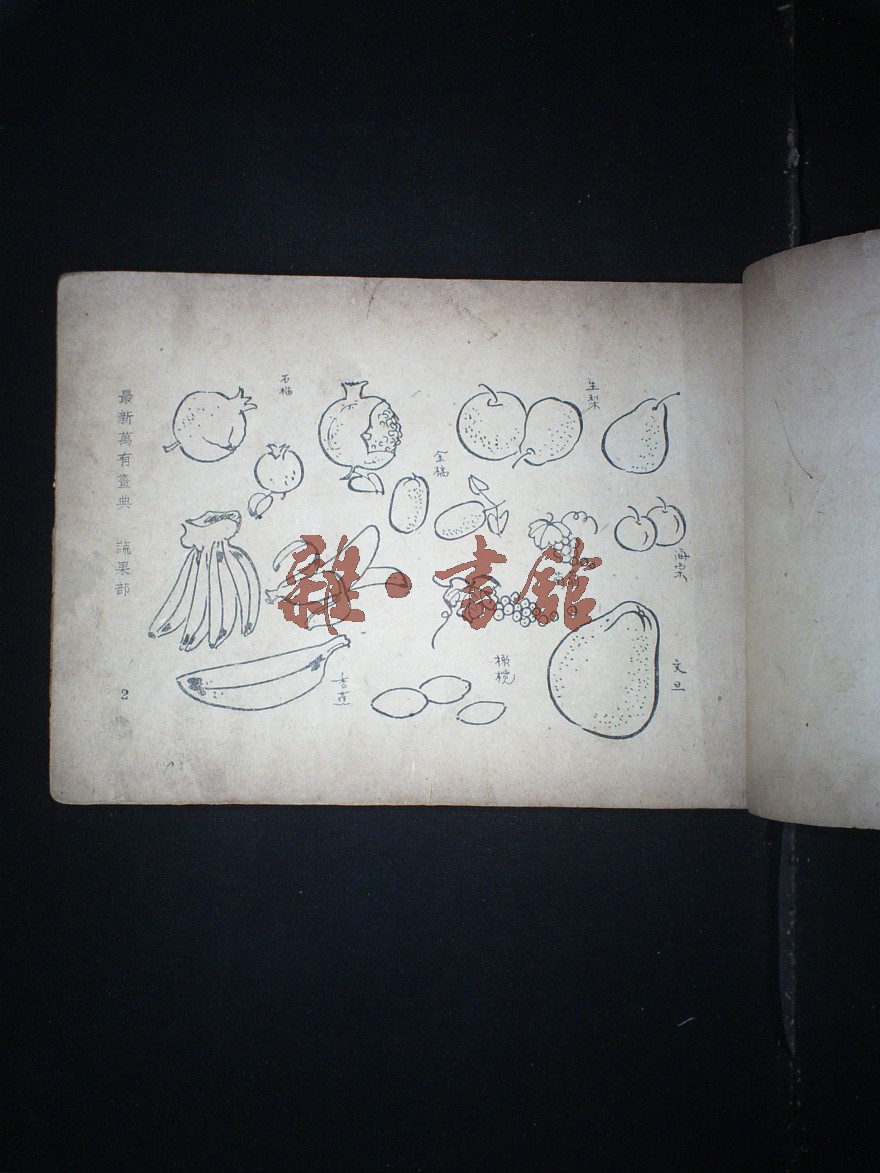 最新萬有畫典 蔬果部 2
石榴
生梨
金橘
海棠
香蕉
橄欖
文旦
雜·書館